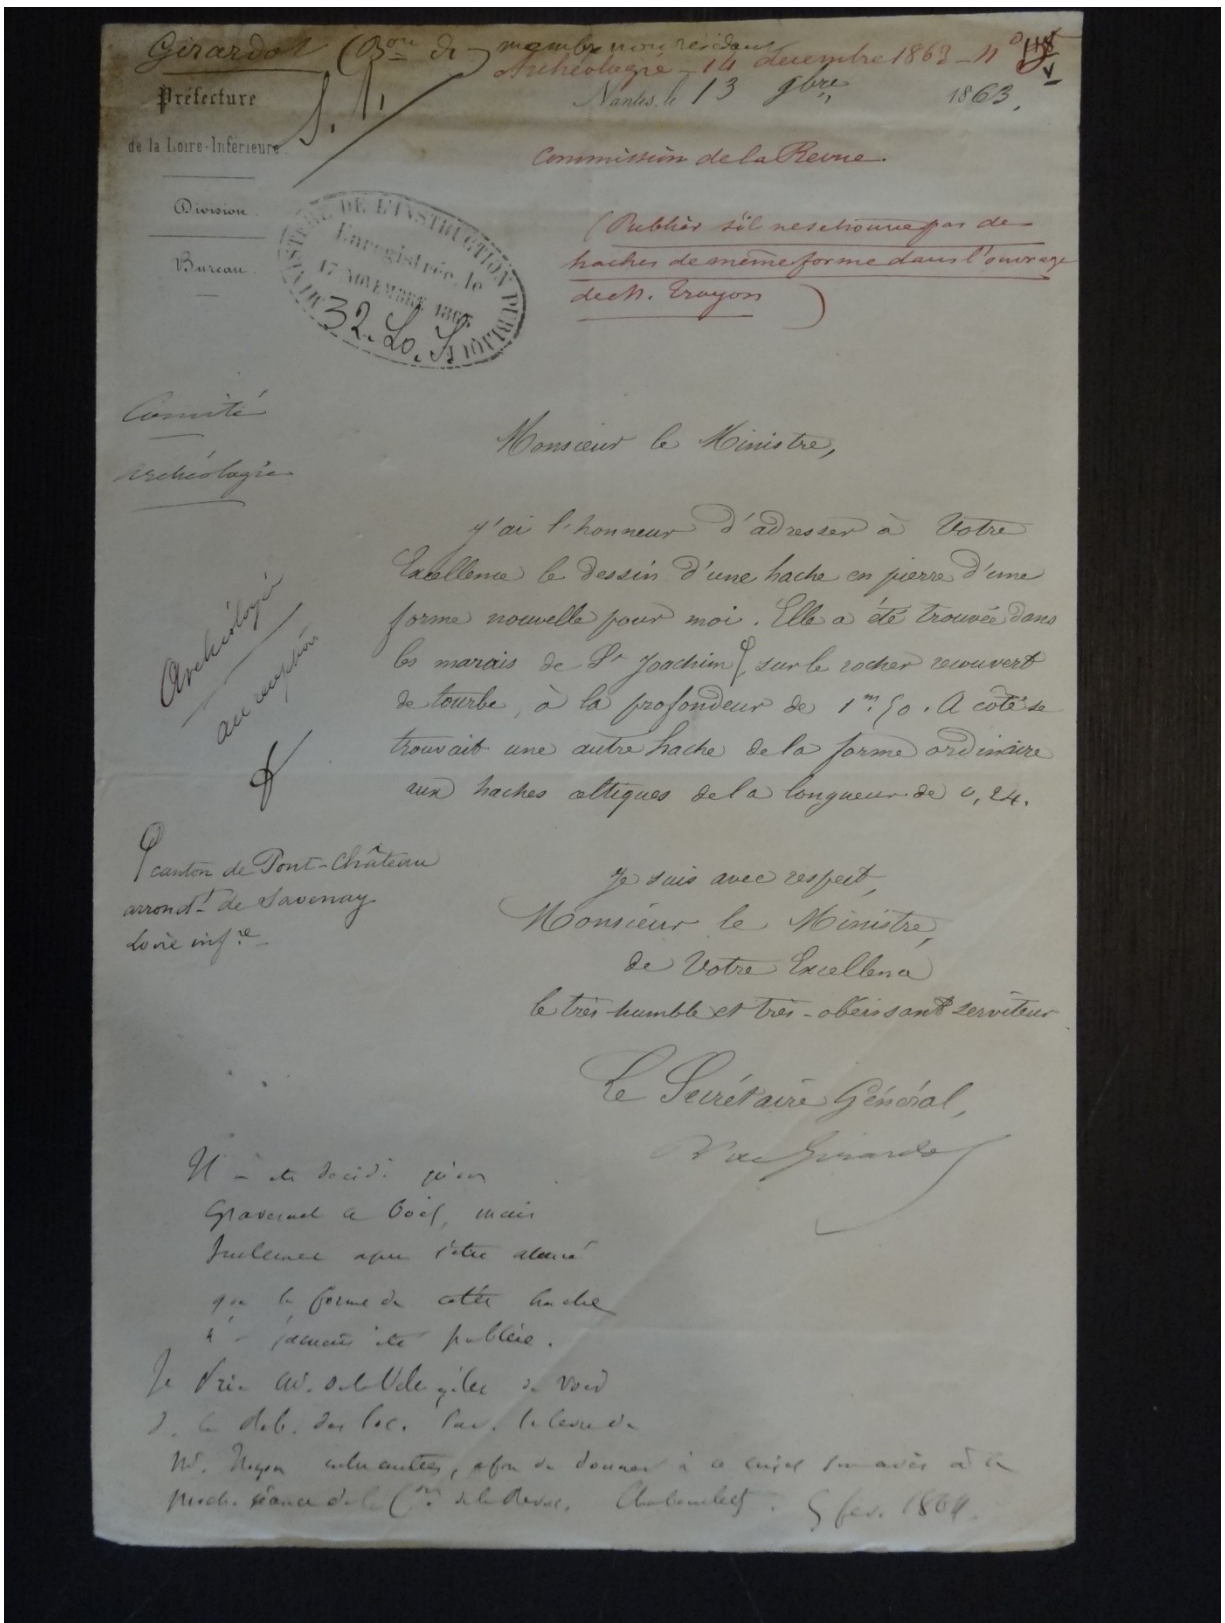 Girardot (Bon de) membre non résidant
Archéologie - 14 decembre 1863 - N°
Préfecture
de la Loire-Inférieure.
Nantes, le 13 9bre 1863.
S. A.
Commission de la Revue.
Division
Bureau
MINISTÈRE DE L'INSTRUCTION PUBLIQUE
Enregistrée le
17 NOVEMBRE 1863
32. Lo. S.
(Publier s'il ne se trouve pas de
haches de même forme dans l'ouvrage
de M. Troyon)
Comité
Archéologie
Monsieur le Ministre,
J'ai l'honneur d'adresser à Votre
Excellence le dessin d'une hache en pierre d'une
forme nouvelle pour moi. Elle a été trouvée dans
les marais de St Joachim sur le rocher recouvert
de tourbe, à la profondeur de 1m.50. A côté se
trouvait une autre hache de la forme ordinaire
aux haches celtiques de la longueur de 0,24.
Archéologie
canton de Pont-Château
arrondt. de Savenay
Loire infre
Je suis avec respect,
Monsieur le Ministre,
de Votre Excellence
le très-humble et très-obéissant serviteur
Le Secrétaire Général,
Bon de Girardot
Il a été décidé qu'on
graverait ce bois, mais
seulement après s'être assuré
que la forme de cette hache
n'a jamais été publiée.
Je prie M. de la Villegille de voir
d. la bib. des soc. sav.
M. Troyon afin de donner à ce sujet son avis à la
proch. séance de la Con. de la Revue. Chabouillet. 5 fev. 1864.